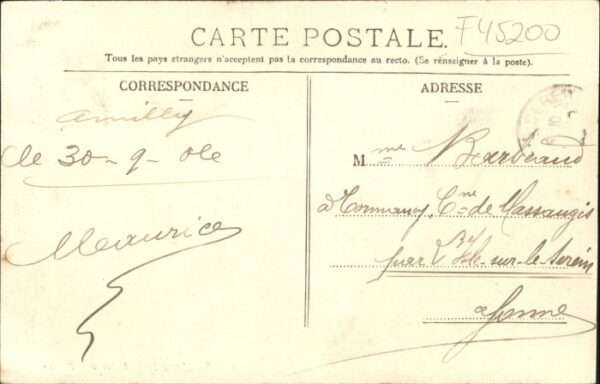 CARTE POSTALE.
F45200
Tous les pays étrangers n'acceptent pas la correspondance au recto. (Se renseigner à la poste).
CORRESPONDANCE
Amilly
le 30-9-
Maurice
ADRESSE
Mme
à Tormancy, Cne de Massangis
par Isle-sur-le-Serein
Yonne